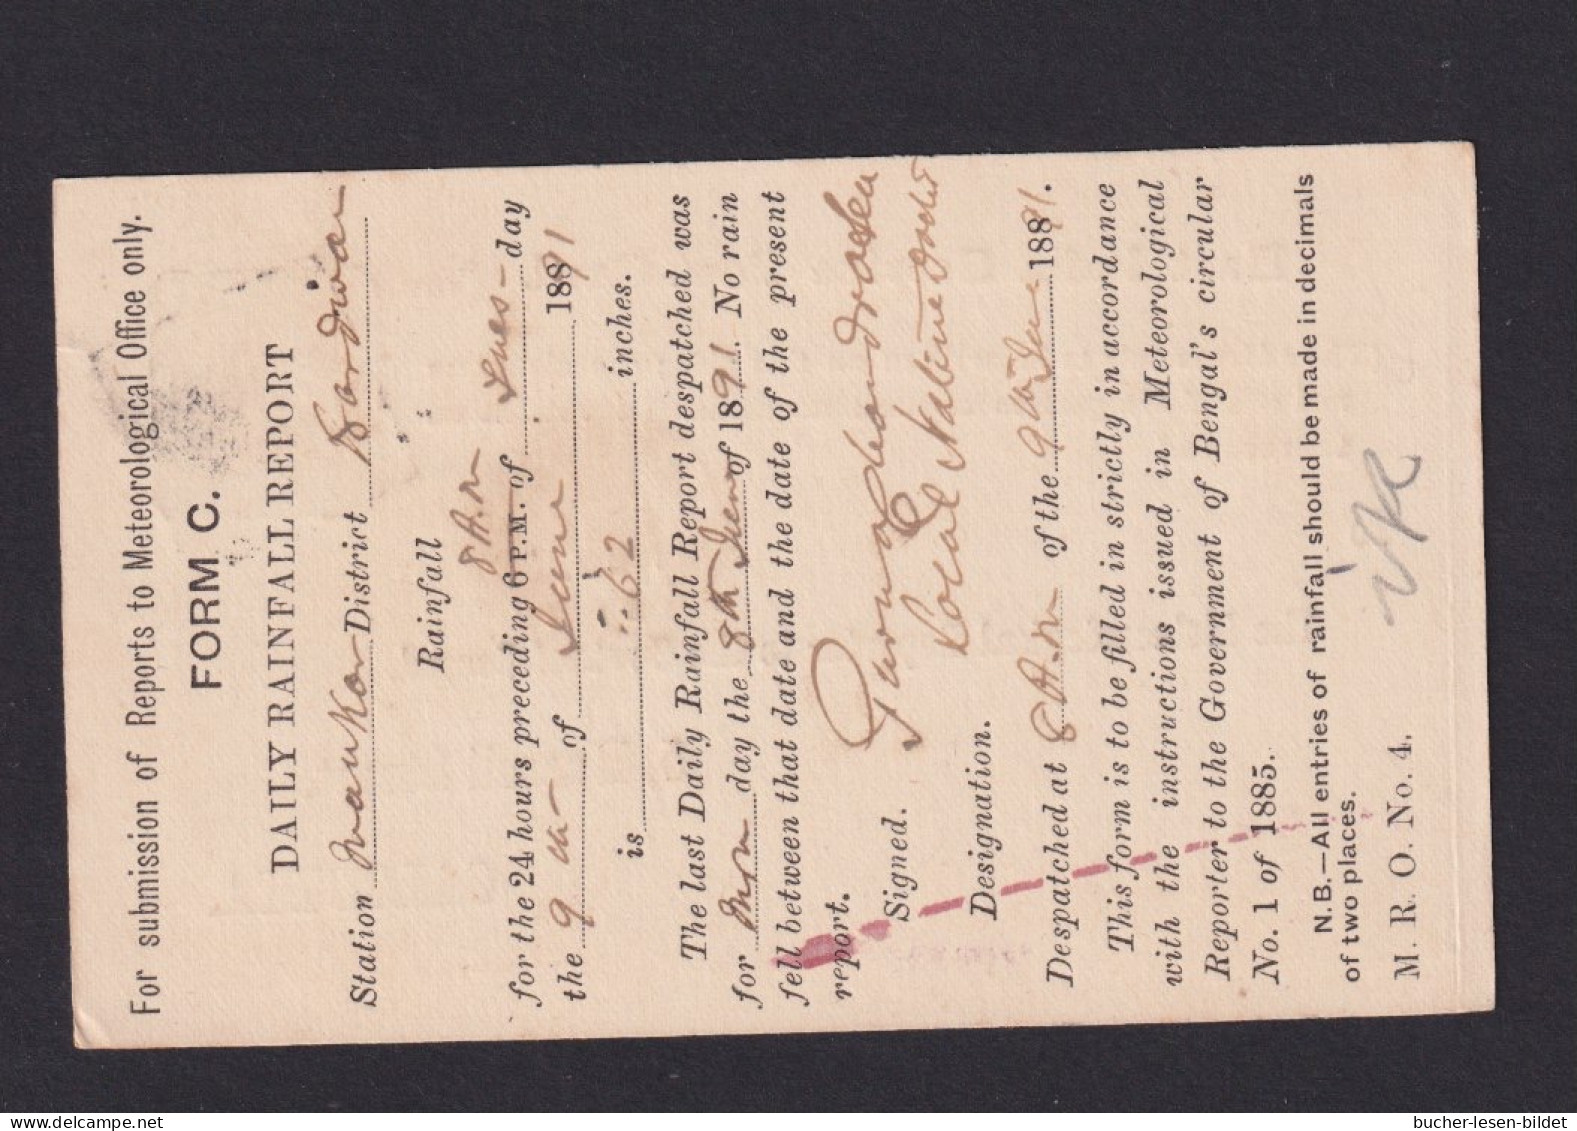 For submission of Reports to Meteorological Office only.
FORM C.
DAILY RAINFALL REPORT
Station Mankor District Bardwan
Rainfall
8 A.M
for the 24 hours preceding 6 P.M. of Tues-day
the 9th of June 1891
is .62 inches.
The last Daily Rainfall Report despatched was
for Mon day the 8th June of 1891. No rain
fell between that date and the date of the present
report.
Signed.
Designation. Local
Despatched at 8 A.M of the 9th June 1891.
This form is to be filled in strictly in accordance
with the instructions issued in Meteorological
Reporter to the Government of Bengal's circular
No. 1 of 1885.
N.B.—All entries of rainfall should be made in decimals
of two places.
M. R. O. No. 4.
bucher-lesen-bildet